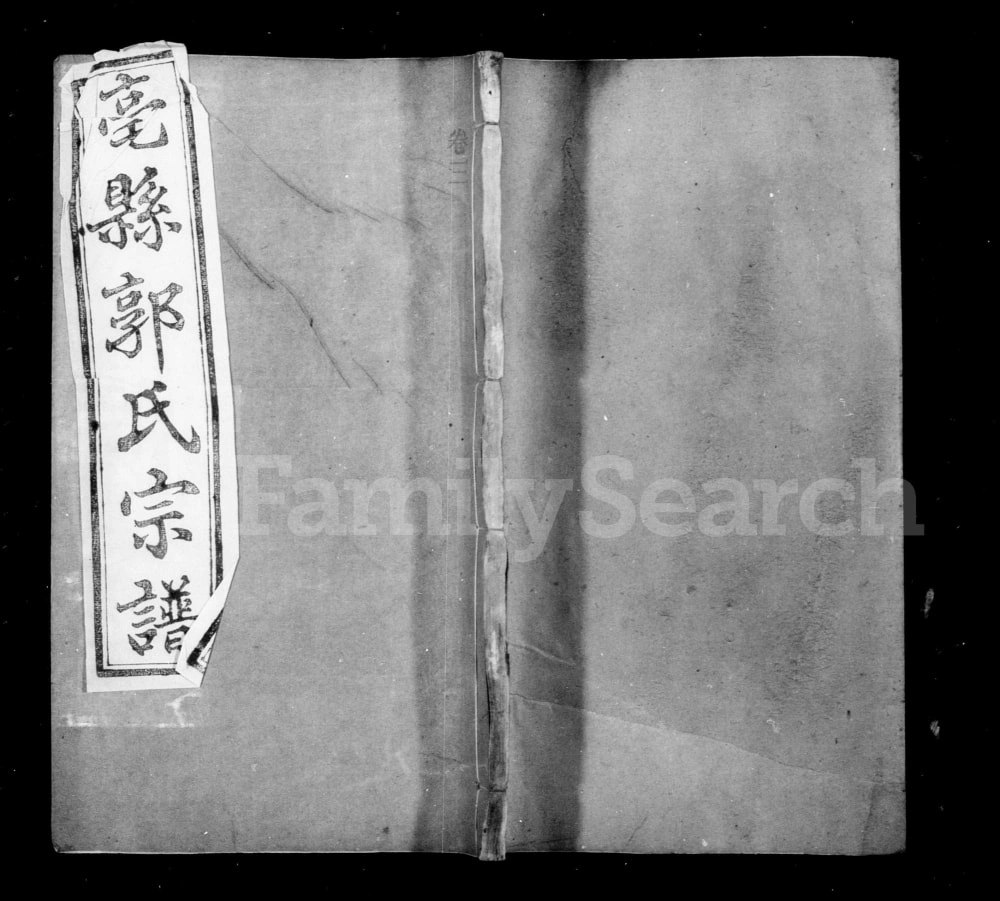 亳縣郭氏宗譜
卷三
FamilySearch